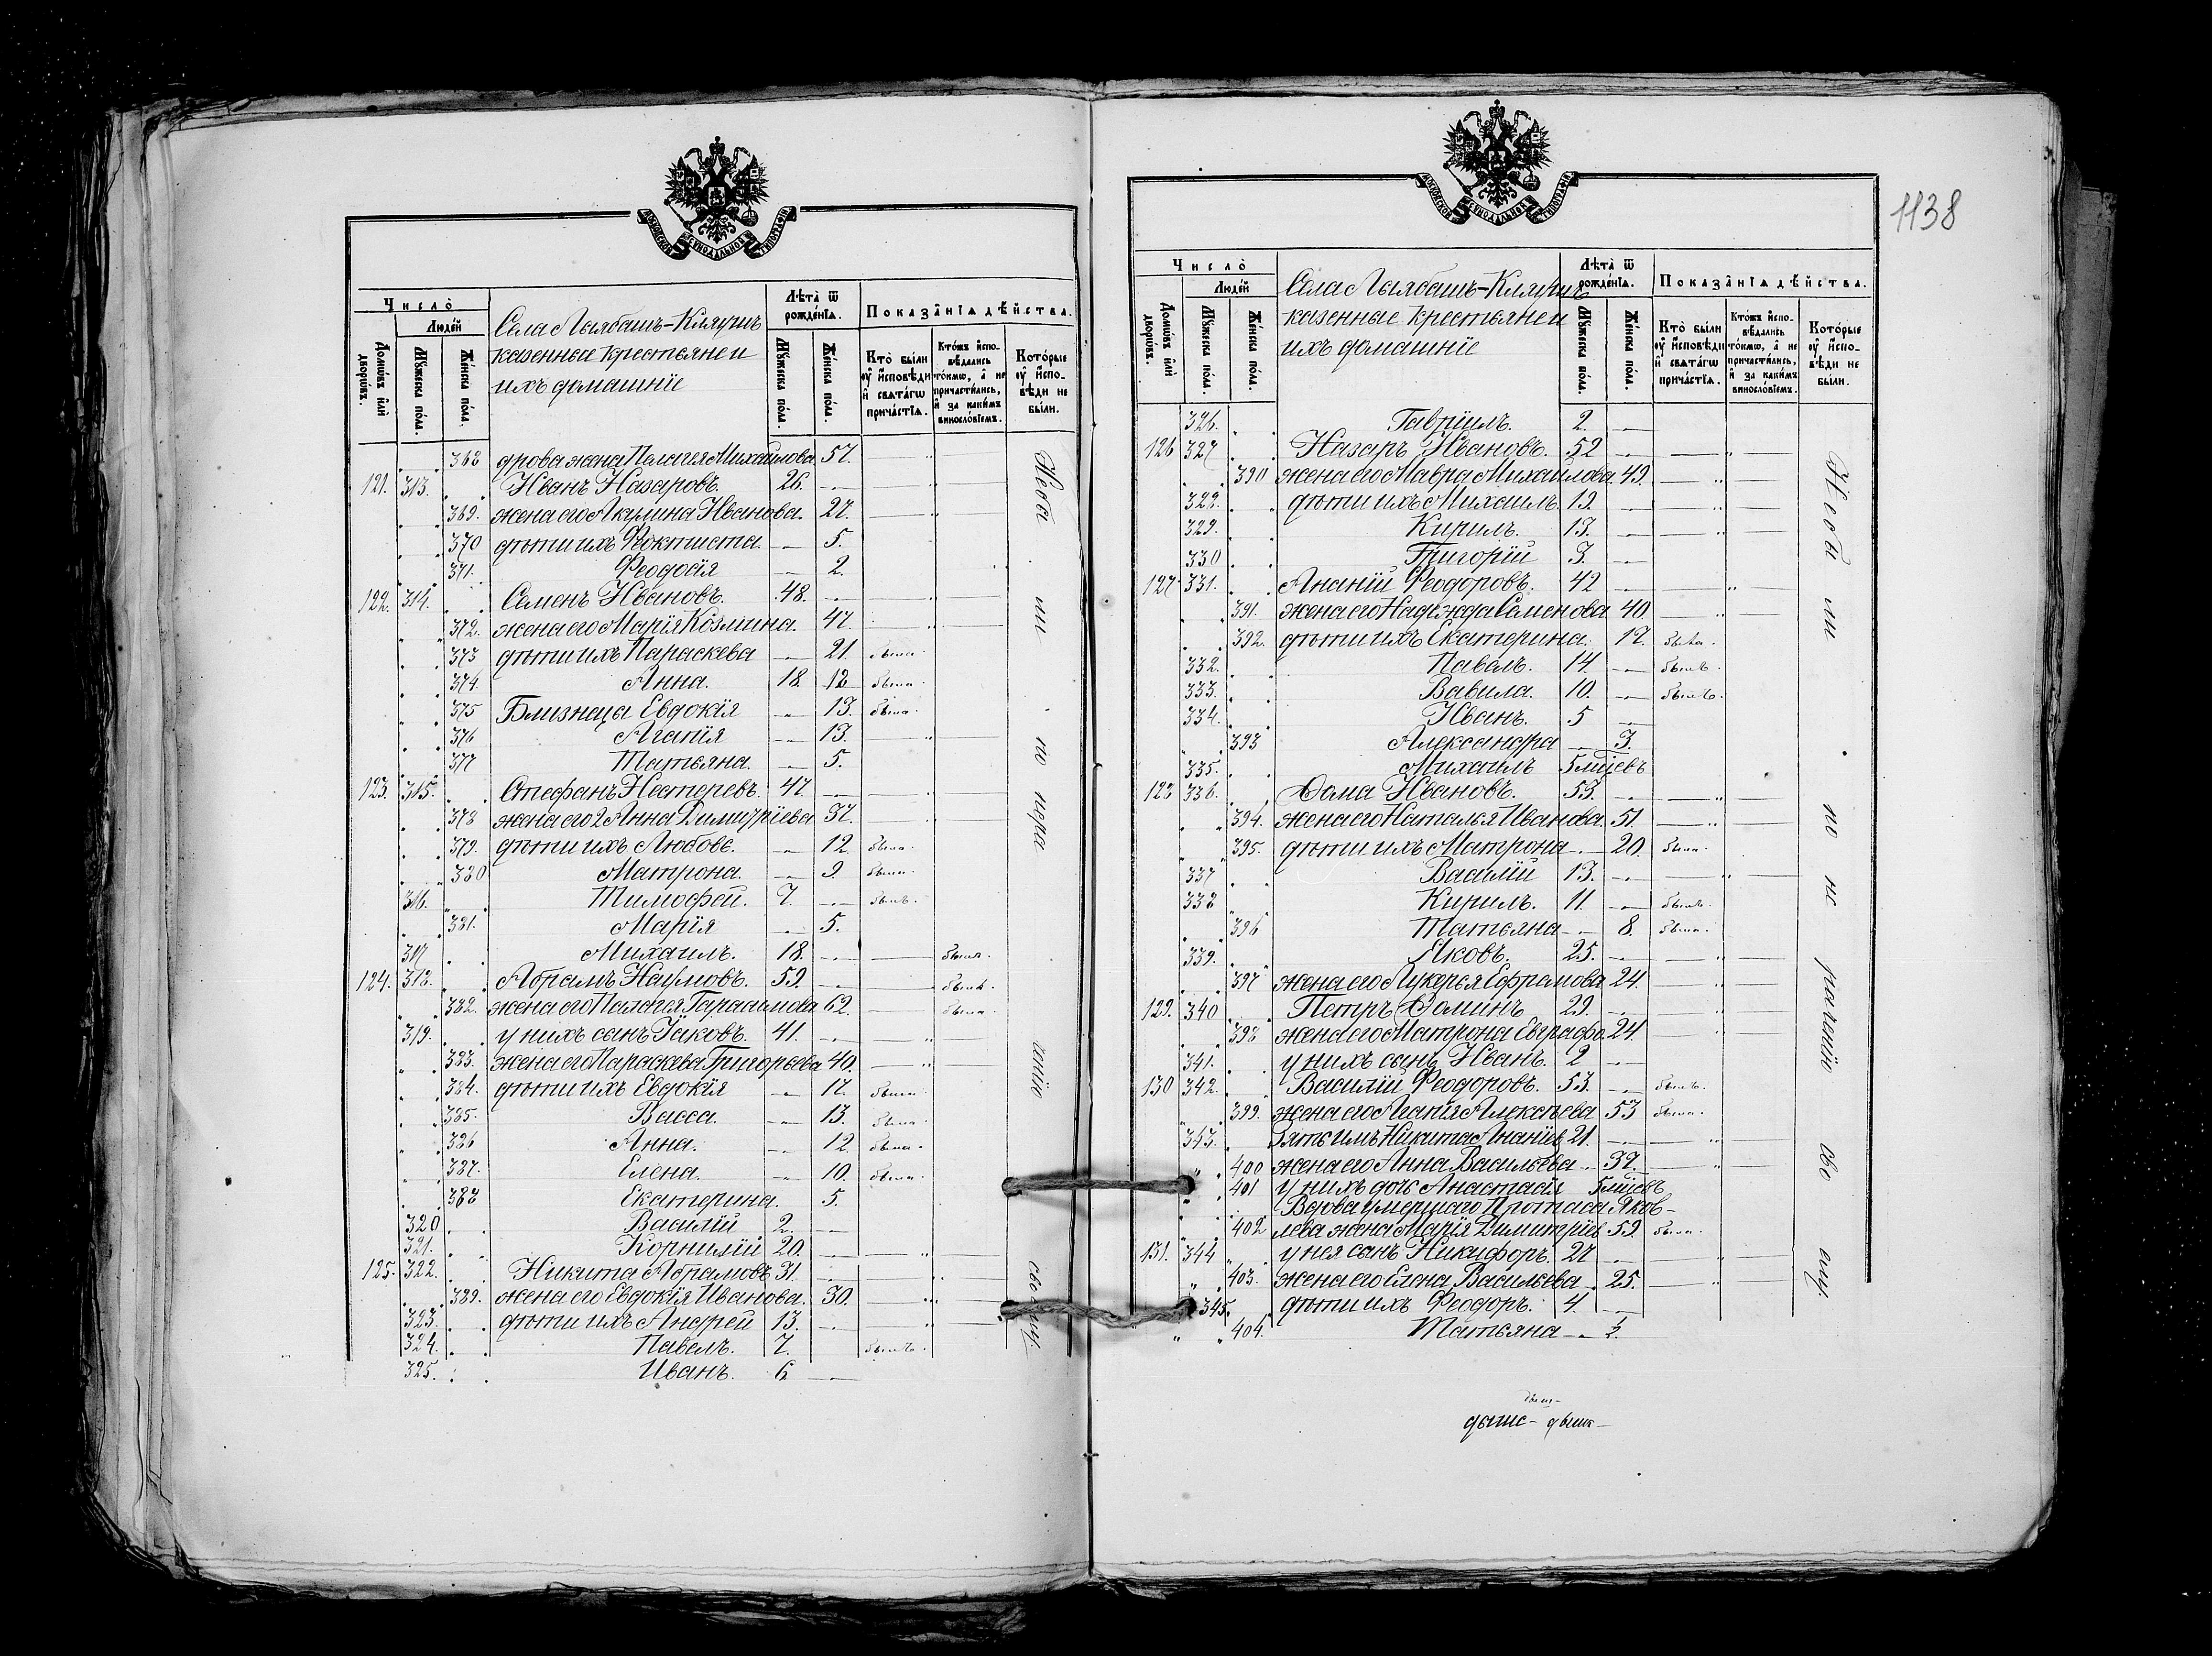 МОСКОВСКОЙ СΥНОДАЛЬНОЙ ТИПОГРАФІИ
Число̀
Людей
Домѡвъ или дворѡвъ.
Мꙋжеска пола.
Женска пола.
Села
казенные крестьяне и
ихъ домашніе
Лѣта ѿ рожденїѧ.
Мꙋжеска пола.
Женска пола.
Показанїѧ дѣйства.
Кто были ᲂу҆ исповѣди и свѧтагѡ причастїѧ.
Ктожъ исповѣдались токмѡ, а не причастились, и за какимъ винословїемъ.
Которые ᲂу҆ исповѣди не были.
" " 368 дрова жена Пелагея Михайлова 57.
121. 313. " " Иванъ Назаровъ. 26. —
" " 369. жена его Акулина Иванова. 27.
" " 370 дѣти ихъ Фоктиста — 5.
" " 371. Феодосія — 2.
122. 314. " " Семенъ Ивановъ. 48. —
" " 372. жена его Марія Козмина. 47.
" " 373 дѣти ихъ Параскева — 21. была.
" " 374. Анна. 18. 12 была.
" " 375 Близнеца Евдокія — 13. была.
" " 376 Агапія — 13.
" " 377 Татьяна. — 5.
123. 315. " " Стефанъ Нестеревъ. 47 —
" " 378 жена его 2 Анна Димитріева 37.
" " 379. дѣти ихъ Любовь. — 12. была.
" " 380 Матрона. — 9. была.
316. " " Тимофей. 7. — былъ.
" " 381. Марія — 5.
317 " " Михаилъ. 18. — былъ.
124. 318. " " Абрамъ Наумовъ. 59. — былъ.
" " 382. жена его Пелагея Гарасимова 62. была.
319. " " у нихъ сынъ Іаковъ. 41. —
" " 383. жена его Параскева Григорьева 40.
" " 384. дѣти ихъ Евдокія — 17. была.
" " 385. Васса. — 13. была.
" " 386 Анна. — 12. была.
" " 387. Елена. — 10. была.
" " 388 Екатерина. 5.
320 " " Василій 2. —
321. " " Корнилій 20. —
125. 322. " " Никита Абрамовъ 31. —
" " 389. жена его Евдокія Иванова. 30.
323. " " дѣти ихъ Андрей 13. —
324. " " Павелъ. 7. былъ.
325. " " Иванъ. 6 —
своему.
1138
МОСКОВСКОЙ СΥНОДАЛЬНОЙ ТИПОГРАФІИ
Число̀
Людей
Домѡвъ или дворѡвъ.
Мꙋжеска пола.
Женска пола.
Села
казенные крестьяне и
ихъ домашніе
Лѣта ѿ рожденїѧ.
Мꙋжеска пола.
Женска пола.
Показанїѧ дѣйства.
Кто были ᲂу҆ исповѣди и свѧтагѡ причастїѧ.
Ктожъ исповѣдались токмѡ, а не причастились, и за какимъ винословїемъ.
Которые ᲂу҆ исповѣди не были.
326. " " Гавріилъ. 2. —
126 327 " " Назаръ Ивановъ. 52 —
" " 390 жена его Мавра Михайлова. 49.
328. " " дѣти ихъ Михаилъ 19. —
329. " " Кирилъ. 13. —
330 " " Григорій 3. —
127 331. " " Ананій Феодоровъ. 42 —
" " 391. жена его Надежда Семенова 40.
" " 392. дѣти ихъ Екатерина. 17. была.
332. " " Павелъ. 14. — былъ.
333. " " Вавила. 10. — былъ.
334. " " Иванъ. 5 —
" " 393 Александра — 3.
335. " " Михаилъ 5 мцевъ
128 336. " " Ѳома Ивановъ. 53. —
" " 394. жена его Наталья Иванова. 51.
" " 395. дѣти ихъ Матрона — 20. была.
337 " " Василій 13. —
338 " " Кирилъ. 11. — былъ.
" " 396 Татьяна — 8. была.
339. " " Яковъ. 25. —
" " 397 жена его Лукерья Ефрамова 24.
129. 340 " " Петръ Ѳоминъ 29. —
" " 398 жена его Матрона Евграфо. 24.
341. " " у нихъ сынъ Иванъ. 2 —
130 342. " " Василій Феодоровъ. 53. — былъ.
" " 399. жена его Агапія Алексѣева 53 была.
343. " зять имъ Никита Ананіев 21. —
" " 400 жена его Анна Васильева — 37.
" " 401 у нихъ дочь Анастасія 5 мцевъ
Вдова умершаго Протаса Яков-
" " 402 лева жена Марія Димитріев 59. была.
131. 344 " " у нея сынъ Никифоръ. 27 —
" " 403. жена его Елена Васильева — 25.
345. " дѣти ихъ Феодоръ. 4. —
" " 404. Татьяна — ½.
не радению